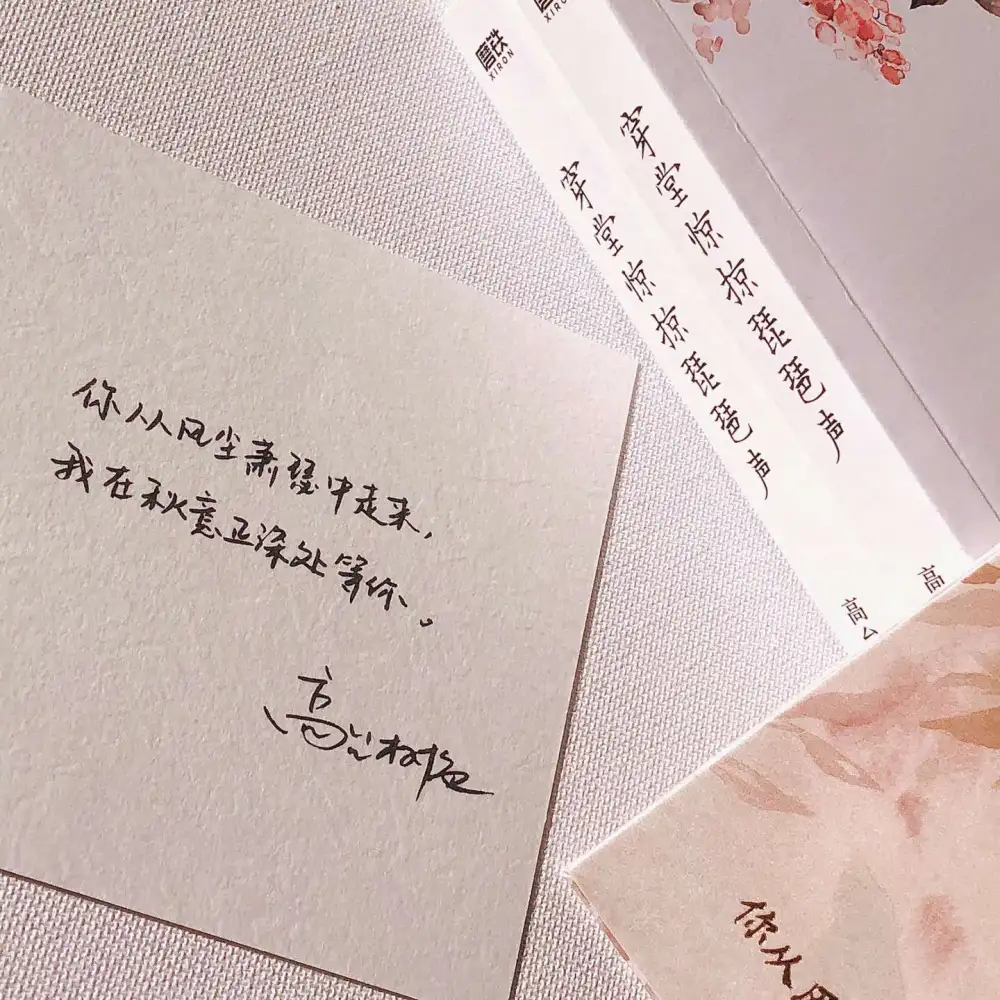 你从风尘萧瑟中走来，
我在秋意正浓处等你。
磨铁
XIRON
穿堂惊掠琵琶声
高
磨铁
XIRON
穿堂惊掠琵琶声
高
你从风